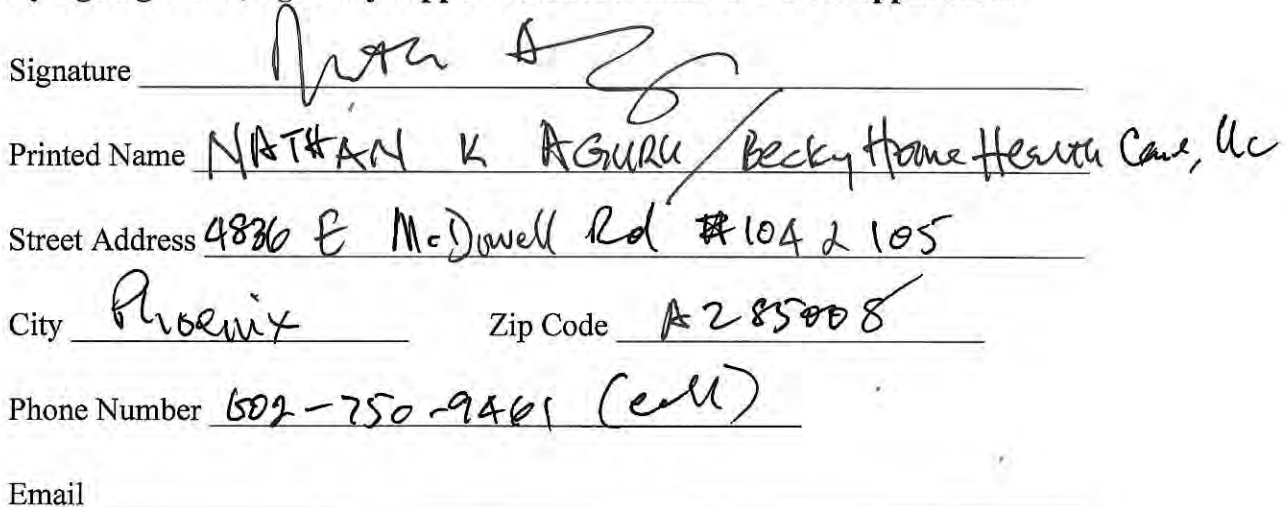 Signature
Printed Name NATHAN K AGURU / Becky Home Health Care, LLC
Street Address 4836 E McDowell Rd #104 & 105
City Phoenix Zip Code AZ 85008
Phone Number 602-750-9461 (cell)
Email